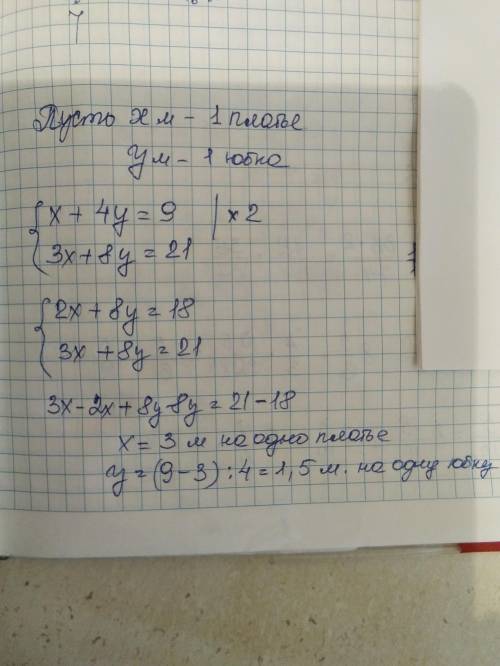 Пусть x м - 1 платье
y м - 1 юбка
x + 4y = 9 | x 2
3x + 8y = 21
2x + 8y = 18
3x + 8y = 21
3x - 2x + 8y - 8y = 21 - 18
x = 3 м на одно платье
y = (9 - 3) : 4 = 1,5 м. на одну юбку